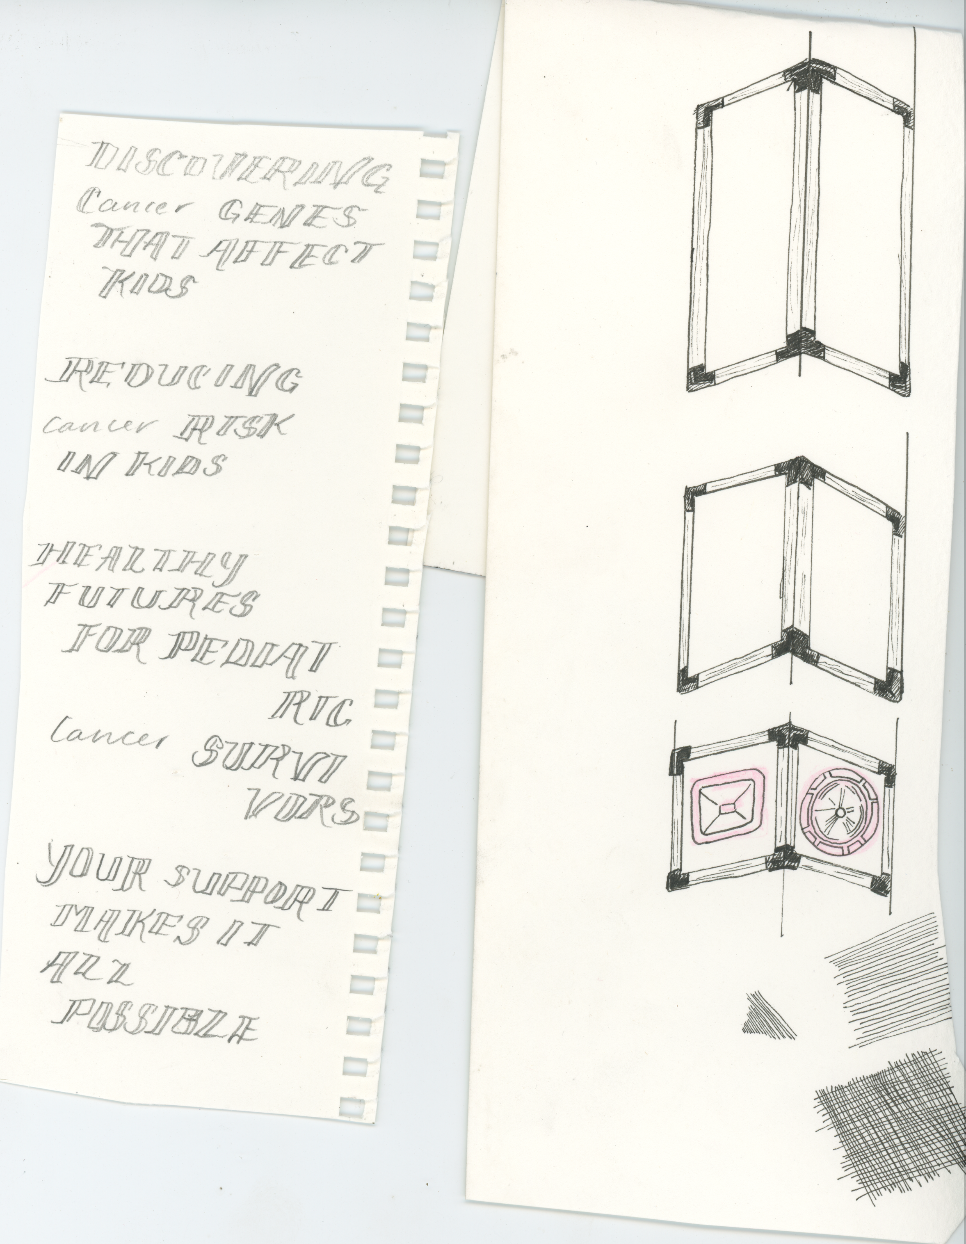 DISCOVERING
Cancer GENES
THAT AFFECT
KIDS
REDUCING
cancer RISK
IN KIDS
HEALTHY
FUTURES
FOR PEDIAT
RIC
Cancer SURVI
VORS
YOUR SUPPORT
MAKES IT
ALL
POSSIBLE